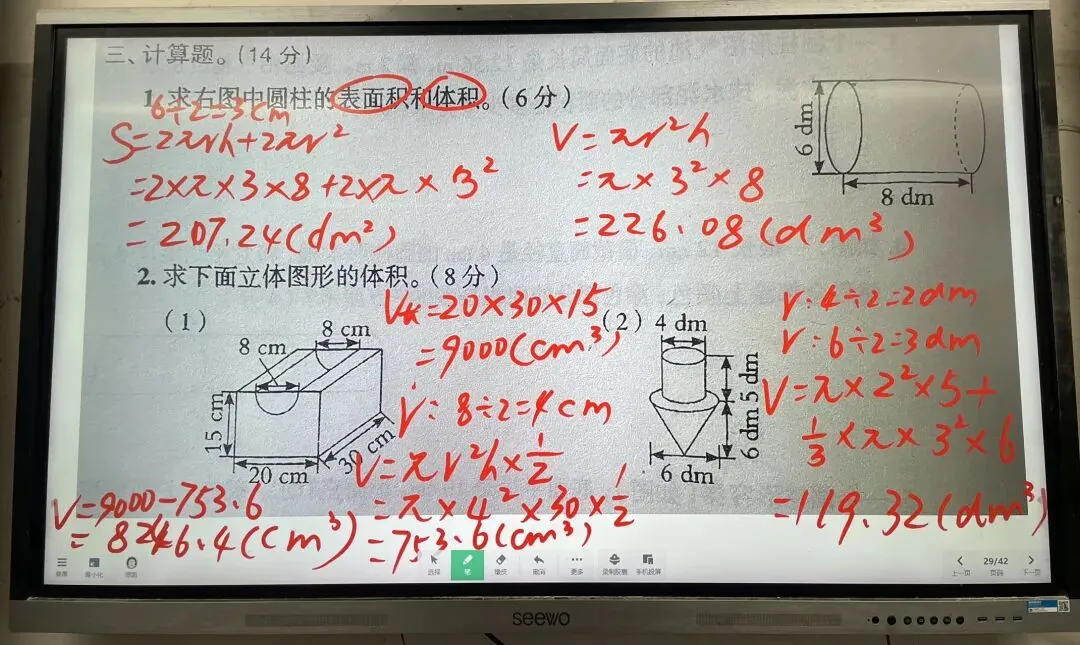 三、计算题。(14分)
1. 求右图中圆柱的表面积和体积。(6分)
6÷2=3cm
S=2πrh+2πr²
=2×π×3×8+2×π×3²
=207.24(dm²)
V=πr²h
=π×3²×8
=226.08(dm³)
6 dm
8 dm
2. 求下面立体图形的体积。(8分)
(1)
8 cm
8 cm
15 cm
20 cm
30 cm
V长=20×30×15
=9000(cm³)
r:8÷2=4cm
V=πr²h×1/2
=π×4²×30×1/2
=753.6(cm³)
V=9000-753.6
=8246.4(cm³)
(2)
4 dm
5 dm
6 dm
6 dm
r:4÷2=2dm
r:6÷2=3dm
V=π×2²×5+
1/3×π×3²×6
=119.32(dm³)
选择
笔
橡皮
撤消
更多
录制胶囊
手机投屏
29/42
上一页
页码
下一页
seewo